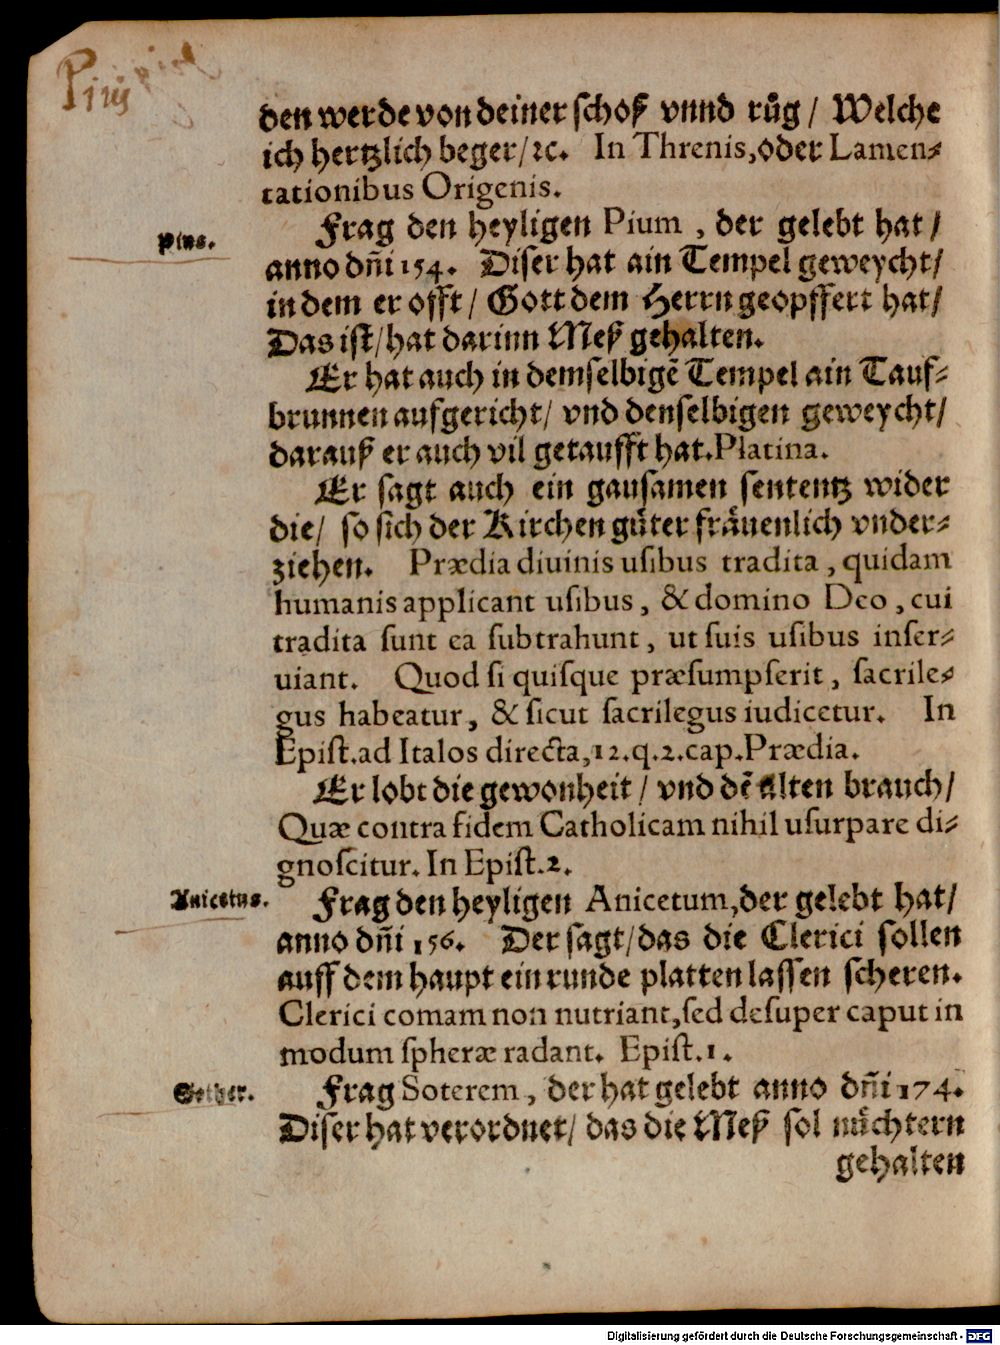 Pius
den werde von deiner schoß vnnd růg / Welche
ich hertzlich beger / ꝛc. In Threnis, oder Lamen⸗
tationibus Origenis.
Pius.
Frag den heyligen Pium, der gelebt hat /
anno dñi 154. Diser hat ain Tempel geweycht /
in dem er offt / Gott dem Herrn geopffert hat /
Das ist / hat darinn Meß gehalten.
Er hat auch in demselbigẽ Tempel ain Tauf⸗
brunnen aufgericht / vnd denselbigen geweycht /
darauß er auch vil getaufft hat. Platina.
Er sagt auch ein gausamen sententz wider
die / so sich der Kirchen gůter fråuenlich vnder⸗
ziehen. Prædia diuinis vsibus tradita, quidam
humanis applicant vsibus, & domino Deo, cui
tradita sunt ea subtrahunt, ut suis usibus inser⸗
uiant. Quod si quisque præsumpserit, sacrile⸗
gus habeatur, & sicut sacrilegus iudicetur. In
Epist. ad Italos directa, 12. q. 2. cap. Prædia.
Er lobt die gewonheit / vnd dẽ alten brauch /
Quæ contra fidem Catholicam nihil usurpare di⸗
gnoscitur. In Epist. 2.
Anicetus.
Frag den heyligen Anicetum, der gelebt hat /
anno dñi 156. Der sagt / das die Clerici sollen
auff dem haupt ein runde platten lassen scheren.
Clerici comam non nutriant, sed desuper caput in
modum spheræ radant. Epist. 1.
Sother.
Frag Soterem, der hat gelebt anno dñi 174.
Diser hat verordnet / das die Meß sol nůchtern
gehalten
Digitalisierung gefördert durch die Deutsche Forschungsgemeinschaft - DFG